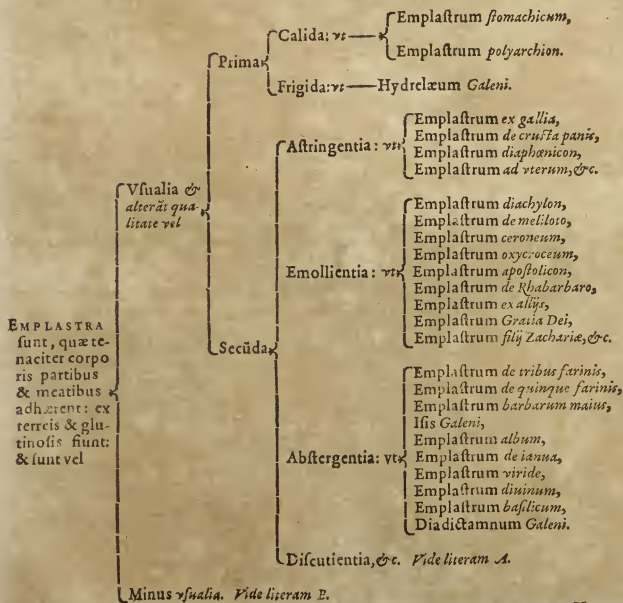 EMPLASTRA
ſunt, quæ te-
naciter corpo
ris partibus
& meatibus
adhærent: ex
terreis & glu-
tinoſis fiunt:
& ſunt vel
Vſualia &
alterāt qua-
litate vel
Prima
Calida: vt
Emplaſtrum ſtomachicum,
Emplaſtrum polyarchion.
Frigida: vt
Hydrelæum Galeni.
Secūda
Aſtringentia: vt
Emplaſtrum ex gallia,
Emplaſtrum de cruſta panis,
Emplaſtrum diaphœnicon,
Emplaſtrum ad vterum, &c.
Emollientia: vt
Emplaſtrum diachylon,
Emplaſtrum de meliloto,
Emplaſtrum ceroneum,
Emplaſtrum oxycroceum,
Emplaſtrum apoſtolicon,
Emplaſtrum de Rhabarbaro,
Emplaſtrum ex allijs,
Emplaſtrum Gratia Dei,
Emplaſtrum filij Zachariæ, &c.
Abſtergentia: vt
Emplaſtrum de tribus farinis,
Emplaſtrum de quinque farinis,
Emplaſtrum barbarum maius,
Iſis Galeni,
Emplaſtrum album,
Emplaſtrum de ianua,
Emplaſtrum viride,
Emplaſtrum diuinum,
Emplaſtrum baſilicum,
Diadictamnum Galeni.
Diſcutientia, &c. Vide literam A.
Minus vſualia. Vide literam B.